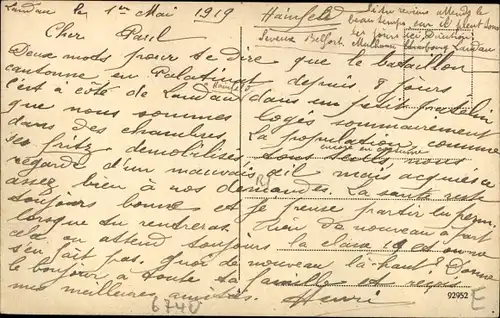 Landau le 1er Mai 1919
Hainfeld
Si tu reviens attends le
beau temps car il pleut tous
les jours ici
Belfort Mulhouse Strasbourg Landau
Cher Paul
Deux mots pour te dire que le bataillon
cantonne en Palatinat depuis 8 jours
Hainfeld
c'est à côté de Landau dans un petit patelin
que nous sommes logés sommairement
dans des chambres. La population comme
les fritz démobilisés nous
regarde d'un mauvais œil mais acquiesce
assez bien à nos demandes. La santé reste
toujours bonne et je pense partir en perm.
lorsque tu rentreras. Rien de nouveau à part
cela on attend toujours la classe
s'en fait pas. Quoi de nouveau là-haut? Donne
le bonjour à toute ta famille et reçois
mes meilleures amitiés. Henri
6740
92952
E